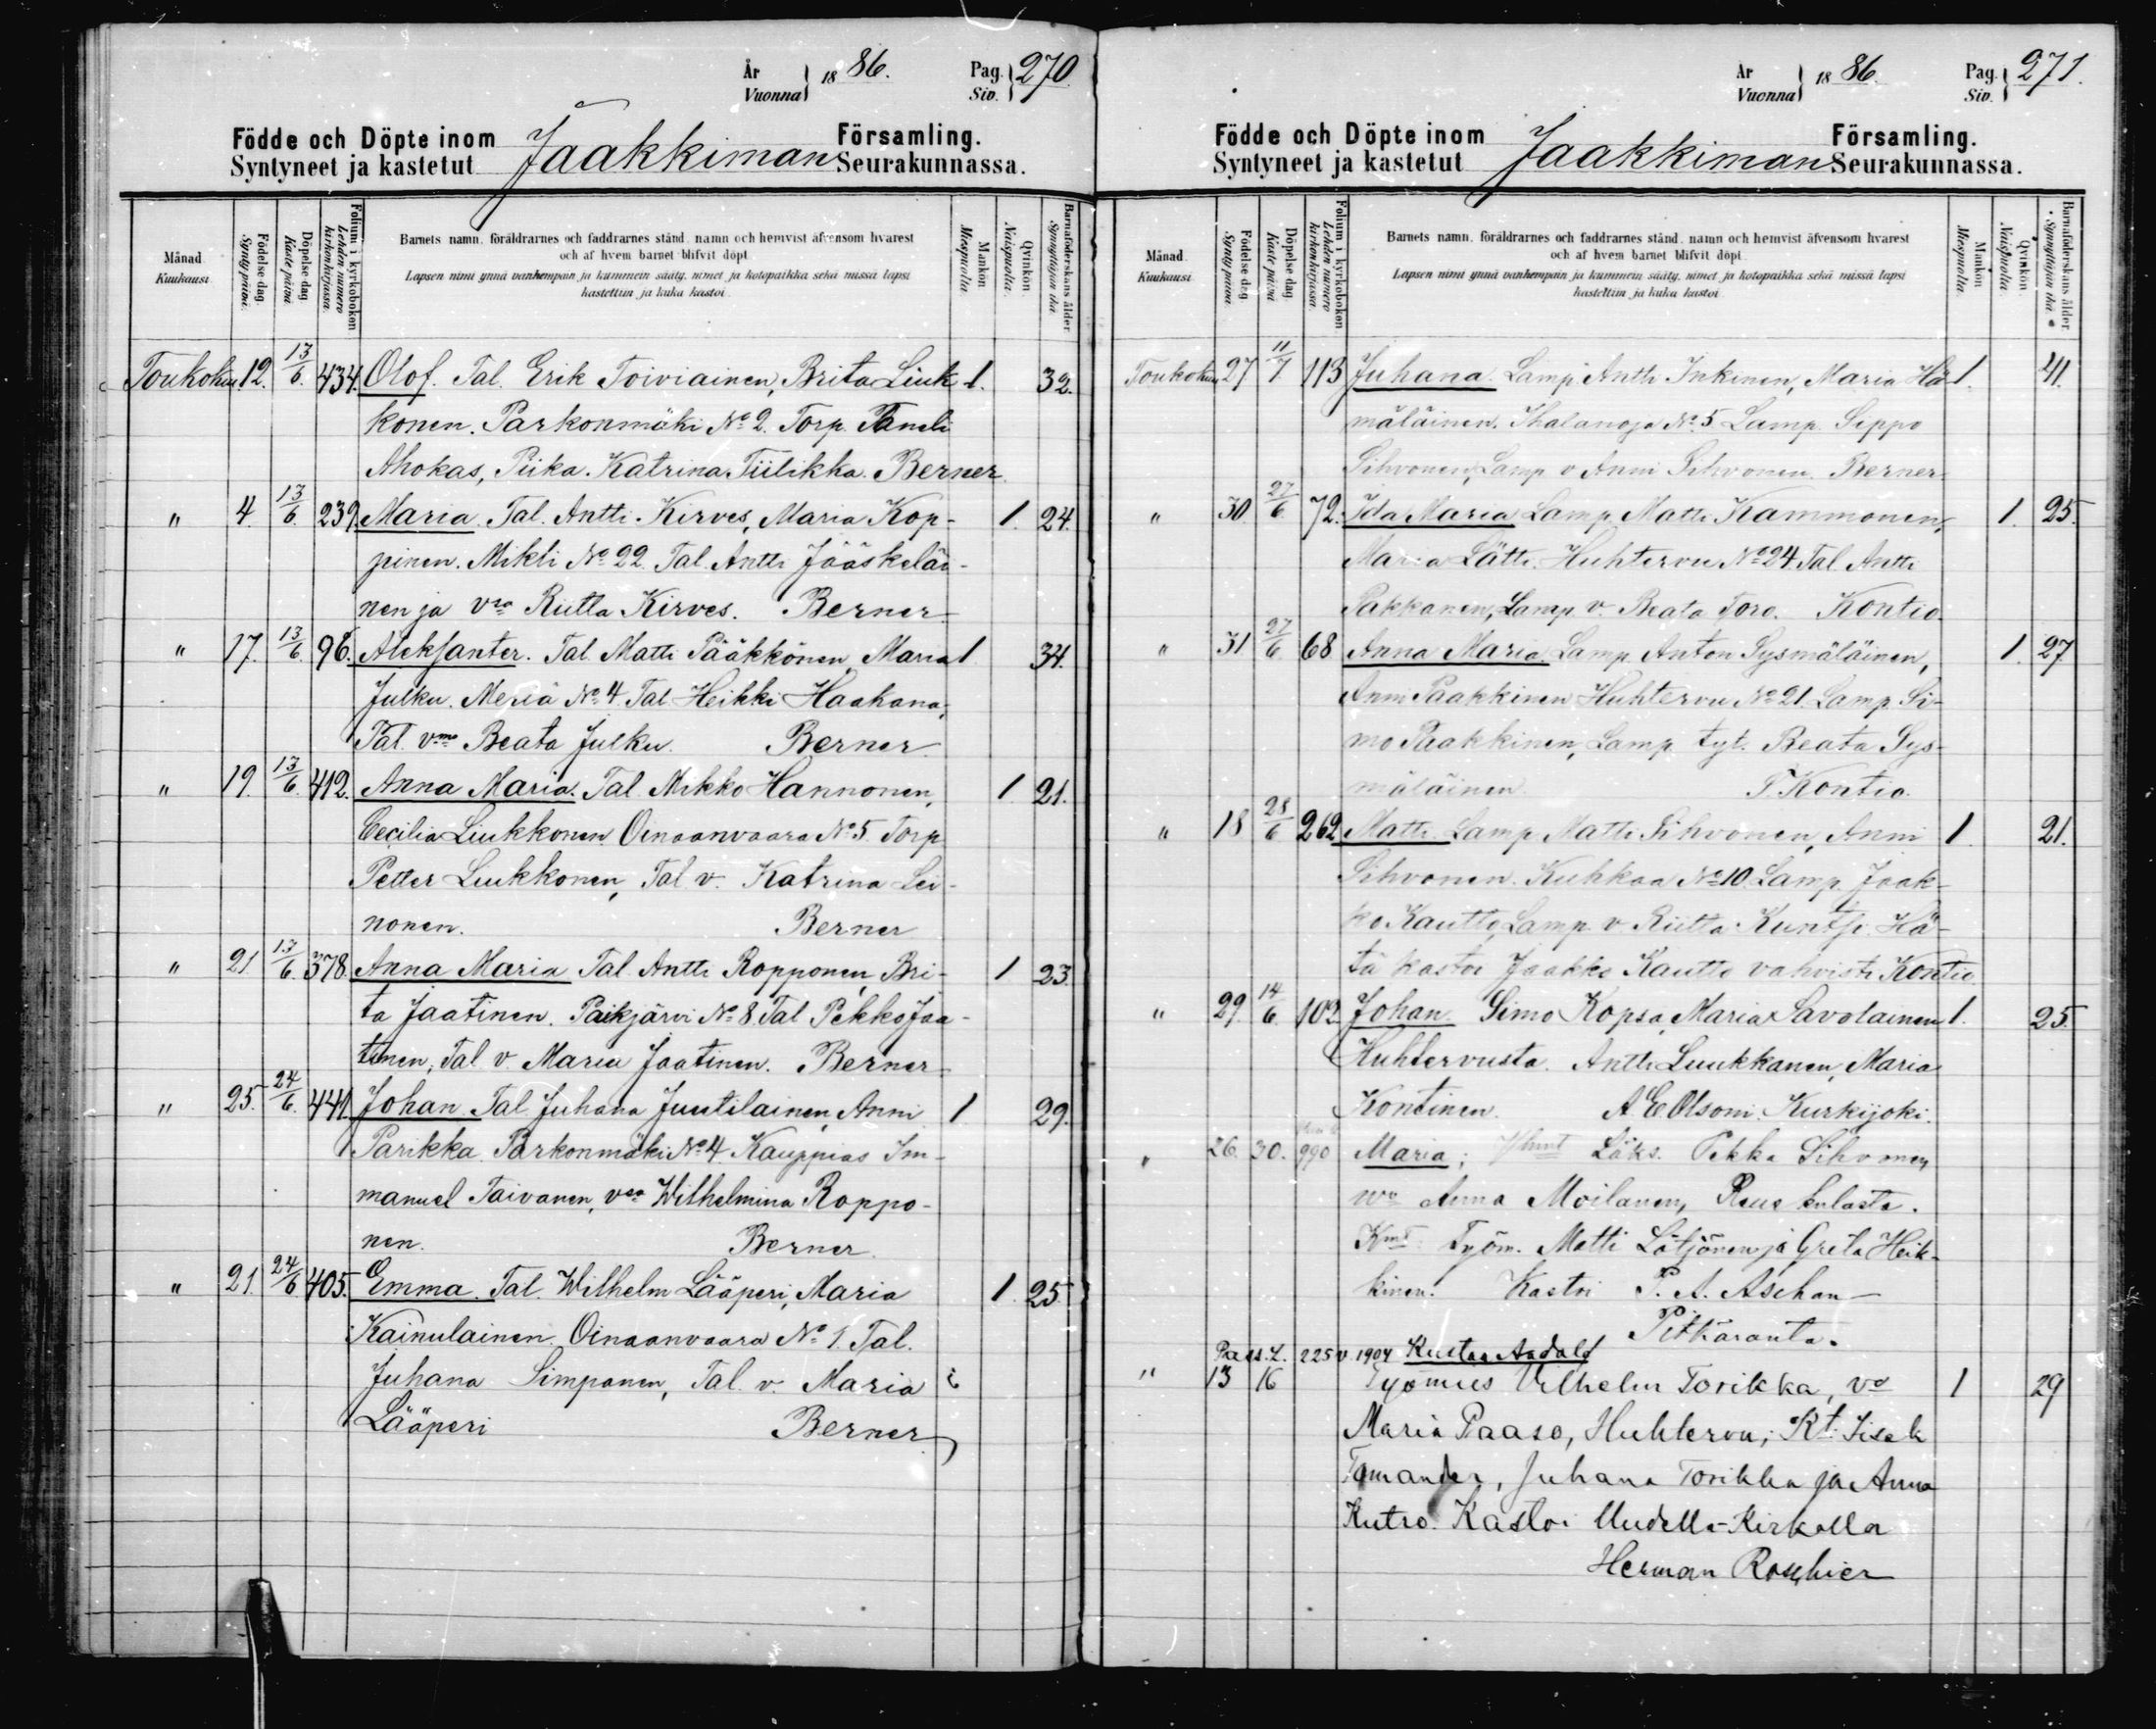 År Vuonna } 1886. Pag. Siv. } 270
Födde och Döpte inom Jaakkiman Församling.
Syntyneet ja kastetut Seurakunnassa.
Månad Kuukausi
Födelse dag. Synty päivä.
Döpelse dag Kaste päivä
Folium i kyrkoboken Lehden numero kirkonkirjassa.
Barnets namn, föräldrarnes och faddrarnes stånd, namn och hemvist äfvensom hvarest
och af hvem barnet blifvit döpt
Lapsen nimi ynnä vanhempain ja kummein sääty, nimet ja kotopaikka sekä missä lapsi
kastettiin ja kuka kastoi
Mankön Miespuolia.
Qvinkön. Naispuolia.
Barnaföderskans ålder Synnyttäjän ikä
Toukokuu 12. 13/6. 434. Olof. Tal. Erik Toiviainen, Brita Liuk- 1. 32.
konen. Parkonmäki No 2. Torp. Taneli
Ahokas, Piika. Katrina Tiilikka. Berner
" 4. 13/6. 239. Maria. Tal. Antti Kirves, Maria Kop- 1. 24.
pinen. Mikli No 22. Tal. Antti Jääskeläi-
nen ja vmo Riitta Kirves. Berner
" 17. 13/6. 96. Aleksanter. Tal. Matti Pääkkönen, Maria 1 34.
Julku. Meriä No 4. Tal. Heikki Haakana,
Tal. vmo Beata Julku. Berner
" 19. 13/6. 412. Anna Maria. Tal. Mikko Hannonen, 1 21.
Cecilia Liukkonen Oinaanvaara No 5. Torp.
Petter Liukkonen, Tal. v. Katrina Lei-
nonen. Berner
" 21 13/6. 378. Anna Maria Tal. Antti Ropponen, Bri- 1 23.
ta Jaatinen. Paikjärvi No 8. Tal. Pekko Jaa-
tinen, Tal. v. Maria Jaatinen. Berner
" 25. 24/6. 441. Johan. Tal. Juhana Juutilainen, Anni 1 29.
Parikka. Parkonmäki No 4. Kauppias Im-
manuel Taivanen, vmo Wilhelmina Roppo-
nen. Berner
" 21. 24/6 405. Emma. Tal. Wilhelm Lääperi, Maria 1 25
Kainulainen. Oinaanvaara No 1. Tal.
Juhana Simpanen, Tal. v. Maria
Lääperi Berner
År Vuonna } 1886. Pag. Siv. } 271.
Födde och Döpte inom Jaakkiman Församling.
Syntyneet ja kastetut Seurakunnassa.
Månad. Kuukausi
Födelse dag Synty päivä.
Döpelse dag Kaste päivä
Folium i kyrkoboken Lehden numero kirkonkirjassa.
Barnets namn, föräldrarnes och faddrarnes stånd, namn och hemvist äfvensom hvarest
och af hvem barnet blifvit döpt.
Lapsen nimi ynnä vanhempain ja kummein sääty, nimet ja kotopaikka sekä missä lapsi
kastettiin ja kuka kastoi
Mankön Miespuolia.
Qvinkön Naispuolia.
Barnaföderskans ålder. Synnyttäjän ikä
Toukokuu 27 11/7 113 Juhana Lamp. Antti Inkinen, Maria Hä- 1. 41.
mäläinen. Ihalanoja No 5 Lamp. Sippo
Sihvonen, Lamp. v. Anni Sihvonen. Berner
" 30. 27/6. 72. Ida Maria Lamp. Matti Kammonen, 1. 25.
Maria Lätti. Huhtervu No 24 Tal. Antti
Pakkanen, Lamp. v. Beata Toro. Kontio.
" 31 27/6. 68 Anna Maria. Lamp. Anton Sysmäläinen, 1. 27
Anni Paakkinen Huhtervu No 21. Lamp. Si-
mo Paakkinen, Lamp. tyt. Beata Sys-
mäläinen. T. Kontio.
" 18 28/6. 262 Matti. Lamp. Matti Sihvonen, Anni 1 21.
Sihvonen. Kuhkaa No 10. Lamp. Jaak-
ko Kautto, Lamp. v. Riitta Kuntsi. Hä-
tä kastoi Jaakko Kautto vahvisti Kontio
" 29. 14/6. 102. Johan. Simo Kopsa, Maria Savolainen 1. 25.
Huhtervusta. Antti Luukkanen, Maria
Kontinen. A E Olsoni. Kurkijoki.
" 26. 30. 990 Maria; Läks. Pekka Sihvonen,
Anna Moilanen,
Kmt. Työm. Matti Lötjönen ja Greta Heik-
kinen. Kastoi P. A. Aschan
Pitkäranta.
Pass. L. 225 v. 1904 Kustaa Aadolf
" 13 16 Työmies Vilhelm Torikka, vo 1 29
Maria Paaso, Huhtervu; Kt. Iisak
Juhana Torikka ja Anna
Kutro. Kastoi Uudella-Kirkolla
Herman Roschier